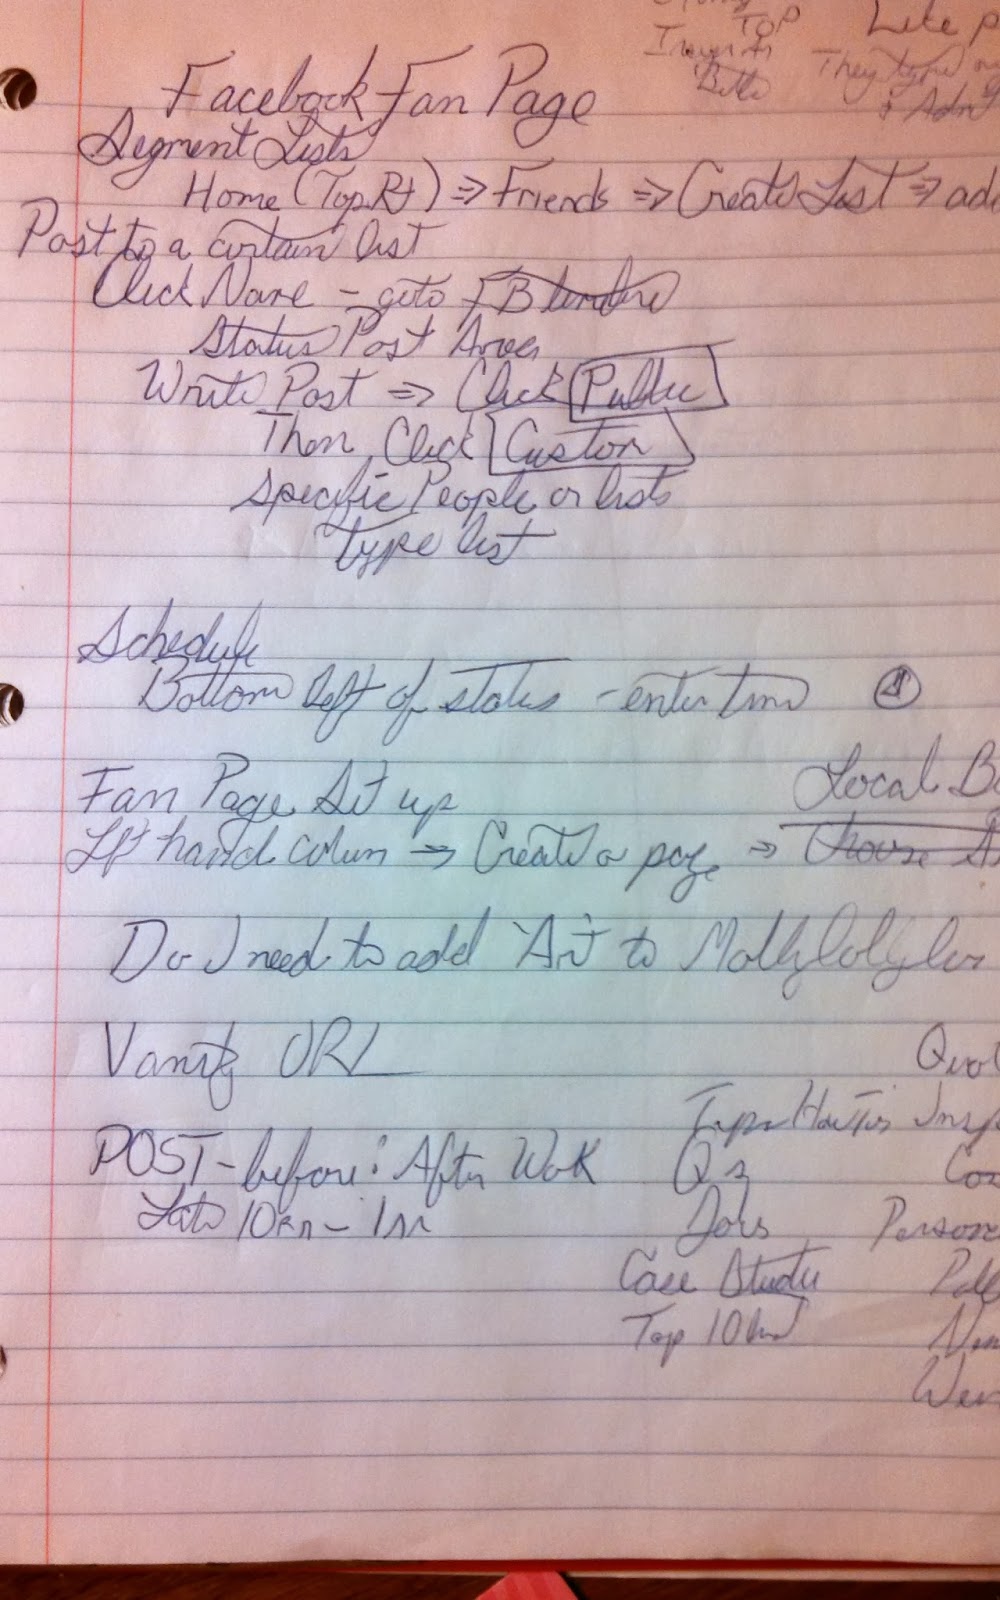 TOP Like p
They type
Facebook Fan Page
Segment Lists
Home (Top Rt) ⇒ Friends ⇒ Create List ⇒ add
Post to a certain list
Click Name - goto FB
Status Post Area
Write Post ⇒ Click Public
Then Click Custom
Specific People or lists
type list
Schedule
Bottom left of status - enter time
Fan Page Set up Local B
Lft hand colum → Create a page ⇒ Choose
Do I need to add 'Art' to
Vanity URL Quot
Tips HowTos Insp
POST - before : After Work Q's
Late 10PM - 1AM Jobs Persona
Case Studies Poll
Top 10